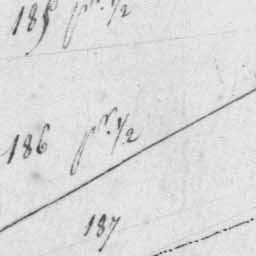 185 pr. 1/2
186 pr. 1/2
187